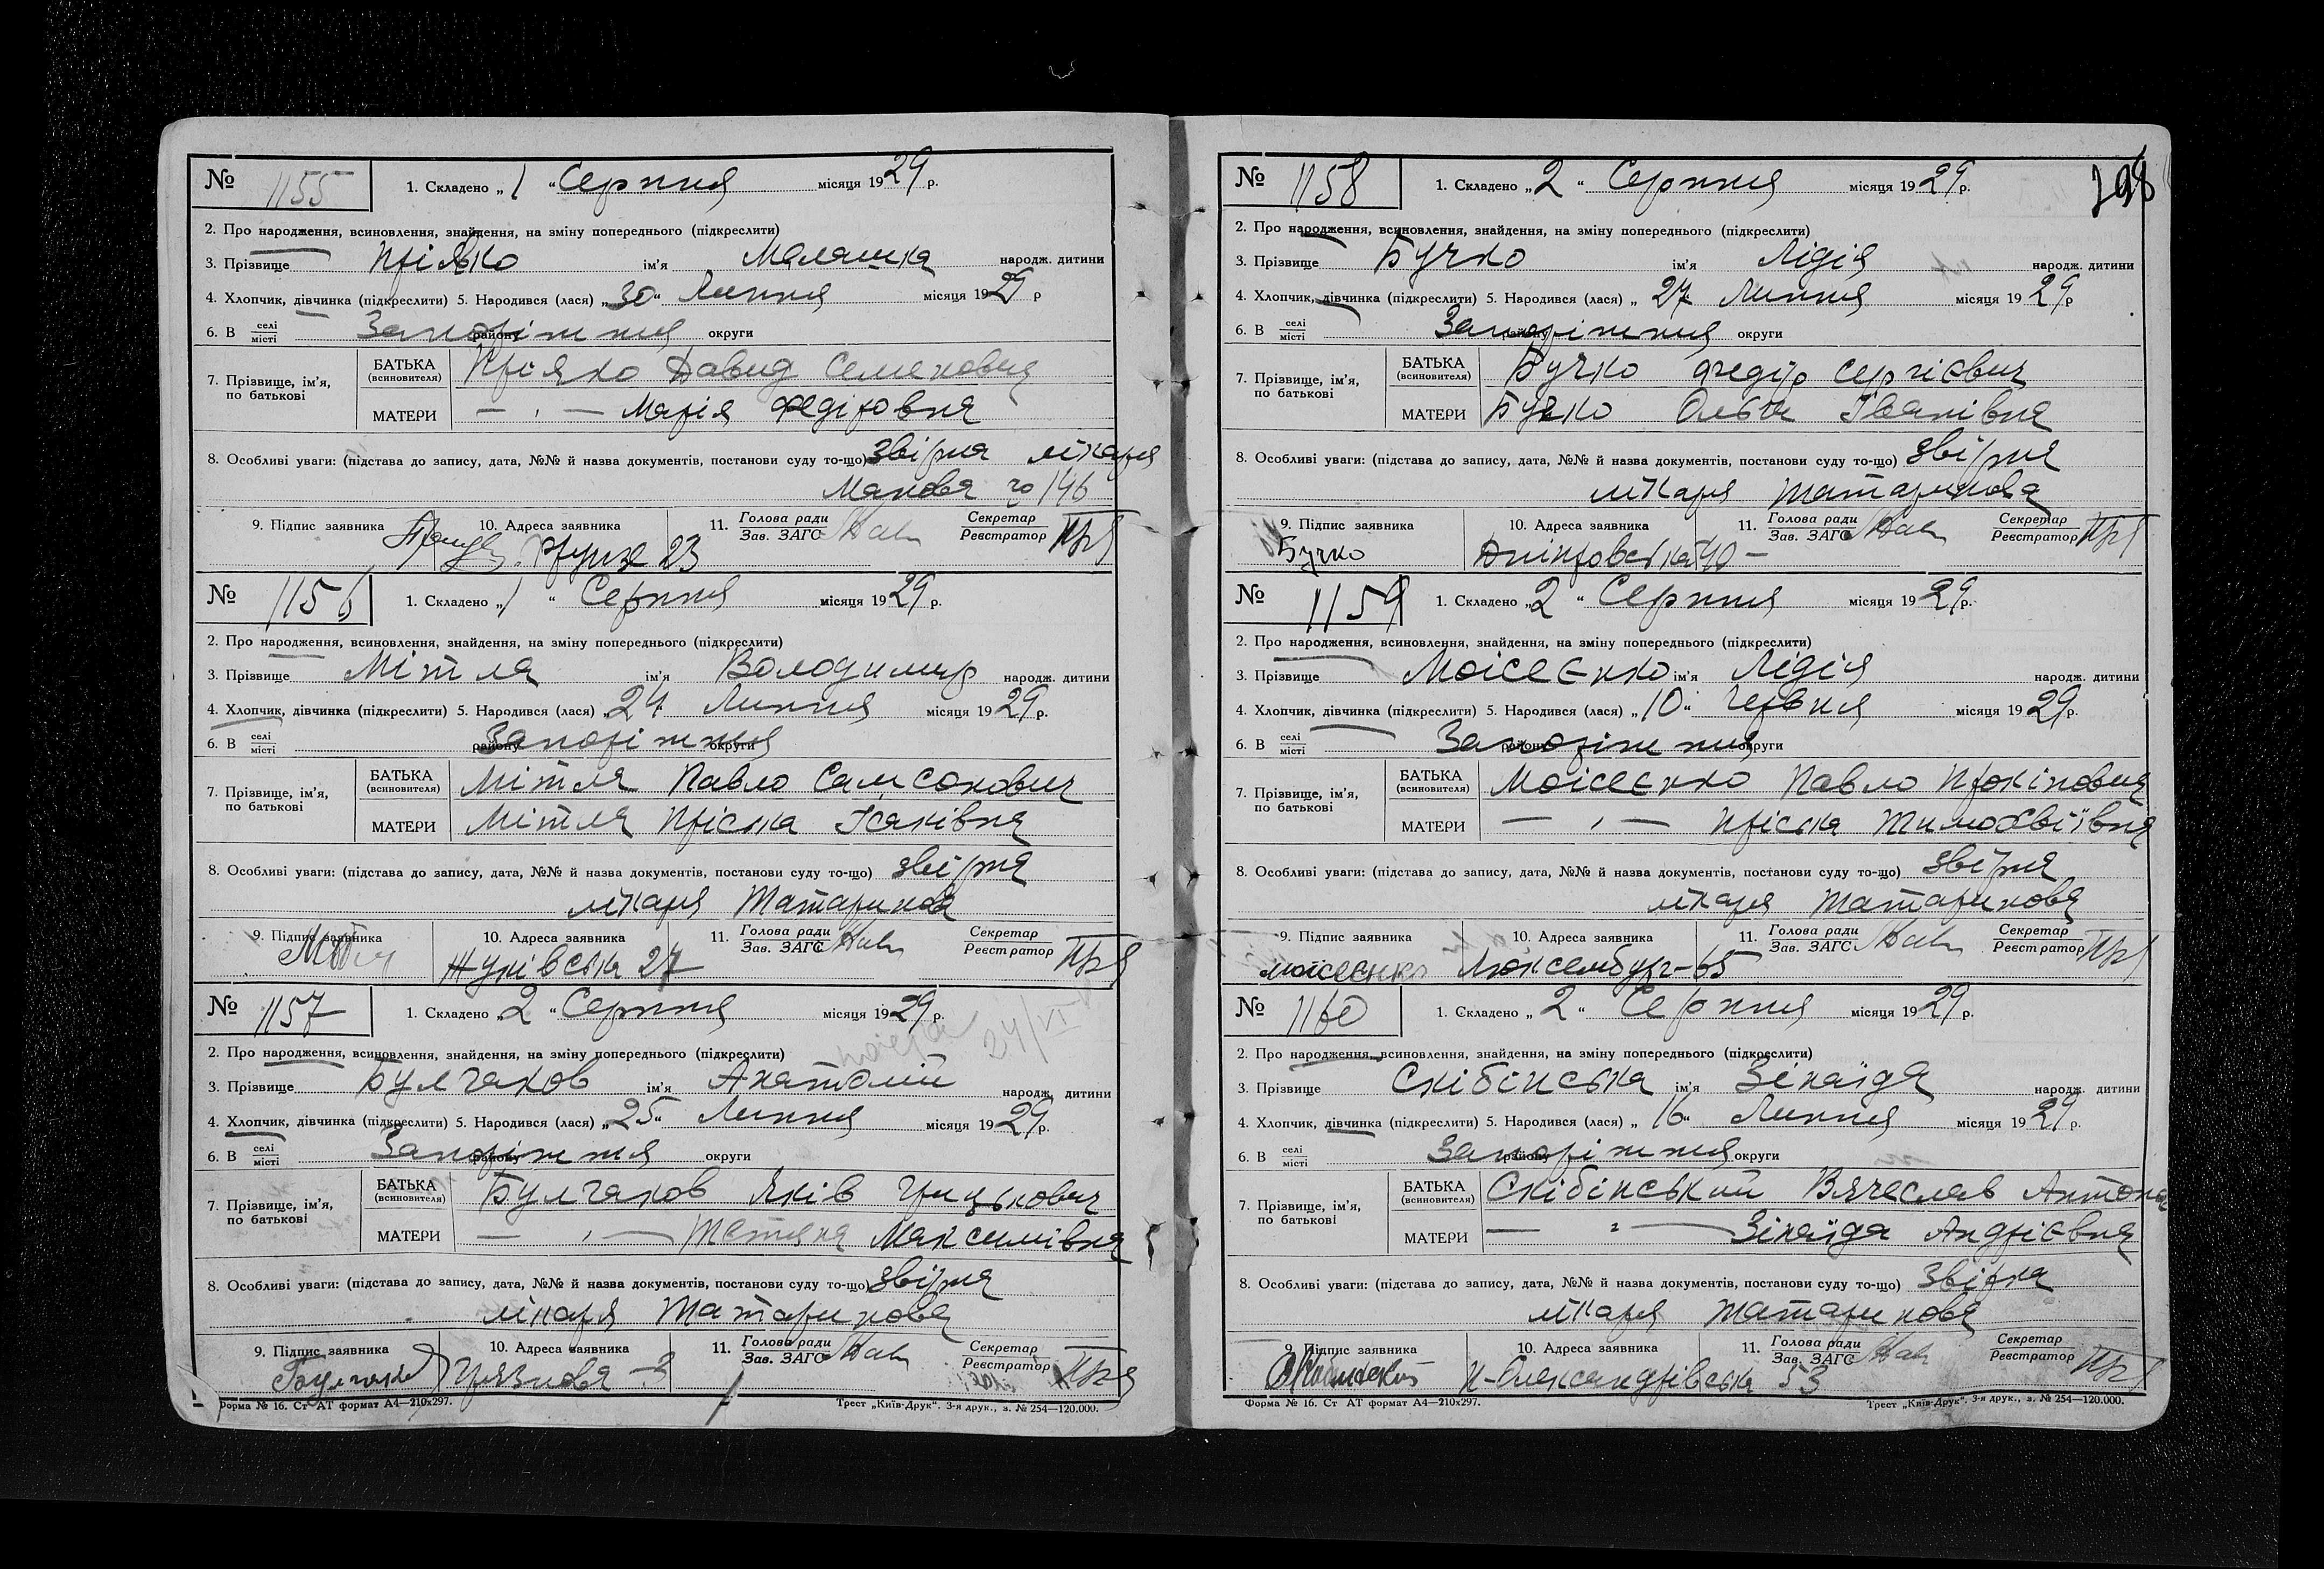 № 1155 1. Складено „1“ Серпня місяця 1929 р.
2. Про народження, всиновлення, знайдення, на зміну попереднього (підкреслити)
3. Прізвище ім'я народж. дитини
4. Хлопчик, дівчинка (підкреслити) 5. Народився (лася) „30“ Липня місяця 1929 р
6. В селі місті Запоріжжя району округи
7. Прізвище, ім'я, по батькові
БАТЬКА (всиновителя) Давид Семенович
МАТЕРИ — „ — Марія Федіровна
8. Особливі уваги: (підстава до запису, дата, №№ й назва документів, постанови суду то-що) Звірка лікаря
146
9. Підпис заявника 10. Адреса заявника 11. Голова ради Зав. ЗАГС Секретар Реєстратор
Фрунзе 23
№ 1156 1. Складено „1“ Серпня місяця 1929 р.
2. Про народження, всиновлення, знайдення, на зміну попереднього (підкреслити)
3. Прізвище Мітля ім'я Володимир народж. дитини
4. Хлопчик, дівчинка (підкреслити) 5. Народився (лася) 24 Липня місяця 1929 р.
6. В селі місті Запоріжжя району округи
7. Прізвище, ім'я, по батькові
БАТЬКА (всиновителя) Мітля Павло Самсонович
МАТЕРИ Мітля Пріська Ісаківна
8. Особливі уваги: (підстава до запису, дата, №№ й назва документів, постанови суду то-що) звірка
лікаря Татаринова
9. Підпис заявника 10. Адреса заявника 11. Голова ради Зав. ЗАГС Секретар Реєстратор
Жуківська 27
№ 1157 1. Складено „2“ Серпня місяця 1929 р.
2. Про народження, всиновлення, знайдення, на зміну попереднього (підкреслити)
3. Прізвище Булгаков ім'я Анатолій народж. дитини
4. Хлопчик, дівчинка (підкреслити) 5. Народився (лася) „25“ Липня місяця 1929 р.
6. В селі місті Запоріжжя району округи
7. Прізвище, ім'я, по батькові
БАТЬКА (всиновителя) Булгаков Яків Грицькович
МАТЕРИ — „ — Тетяна Максимівна
8. Особливі уваги: (підстава до запису, дата, №№ й назва документів, постанови суду то-що) Звірка
лікаря Татаринова
9. Підпис заявника 10. Адреса заявника 11. Голова ради Зав. ЗАГС Секретар Реєстратор
Булгаков Грязнова - 3
Форма № 16. Ст АТ формат А4—210х297. Трест „Київ-Друк“. 3-я друк., з. № 254—120.000.
№ 1158 1. Складено „2“ Серпня місяця 1929 р. 198
2. Про народження, всиновлення, знайдення, на зміну попереднього (підкреслити)
3. Прізвище Бучко ім'я Лідія народж. дитини
4. Хлопчик, дівчинка (підкреслити) 5. Народився (лася) „27 Липня місяця 1929 р
6. В селі місті Запоріжжя району округи
7. Прізвище, ім'я, по батькові
БАТЬКА (всиновителя) Бучко Федір Сергієвич
МАТЕРИ Бучко Ольга Іванівна
8. Особливі уваги: (підстава до запису, дата, №№ й назва документів, постанови суду то-що) Звірка
лікаря Татаринова
9. Підпис заявника 10. Адреса заявника 11. Голова ради Зав. ЗАГС Секретар Реєстратор
Бучко Дніпровська 40 –
№ 1159 1. Складено „2“ Серпня місяця 1929 р.
2. Про народження, всиновлення, знайдення, на зміну попереднього (підкреслити)
3. Прізвище Моісеєнко ім'я Лідія народж. дитини
4. Хлопчик, дівчинка (підкреслити) 5. Народився (лася) „10“ Червня місяця 1929 р.
6. В селі місті Запоріжжя району округи
7. Прізвище, ім'я, по батькові
БАТЬКА (всиновителя) Моісеєнко Павло Прокіпович
МАТЕРИ — „ — Пріська Тимофіївна
8. Особливі уваги: (підстава до запису, дата, №№ й назва документів, постанови суду то-що) Звірка
лікаря Татаринова
9. Підпис заявника 10. Адреса заявника 11. Голова ради Зав. ЗАГС Секретар Реєстратор
моісеєнко Люксембург-65
№ 1160 1. Складено „2“ Серпня місяця 1929 р.
2. Про народження, всиновлення, знайдення, на зміну попереднього (підкреслити)
3. Прізвище Скібінська ім'я Зінаїда народж. дитини
4. Хлопчик, дівчинка (підкреслити) 5. Народився (лася) „16“ Липня місяця 1929 р.
6. В селі місті Запоріжжя району округи
7. Прізвище, ім'я, по батькові
БАТЬКА (всиновителя) Скібінський Вячеслав
МАТЕРИ — „ — Зінаїда Андрієвна
8. Особливі уваги: (підстава до запису, дата, №№ й назва документів, постанови суду то-що) Звірка
лікаря Татаринова
9. Підпис заявника 10. Адреса заявника 11. Голова ради Зав. ЗАГС Секретар Реєстратор
Н-Олександрівська 53
Форма № 16. Ст АТ формат А4—210х297. Трест „Київ-Друк“. 3-я друк., з. № 254—120.000.